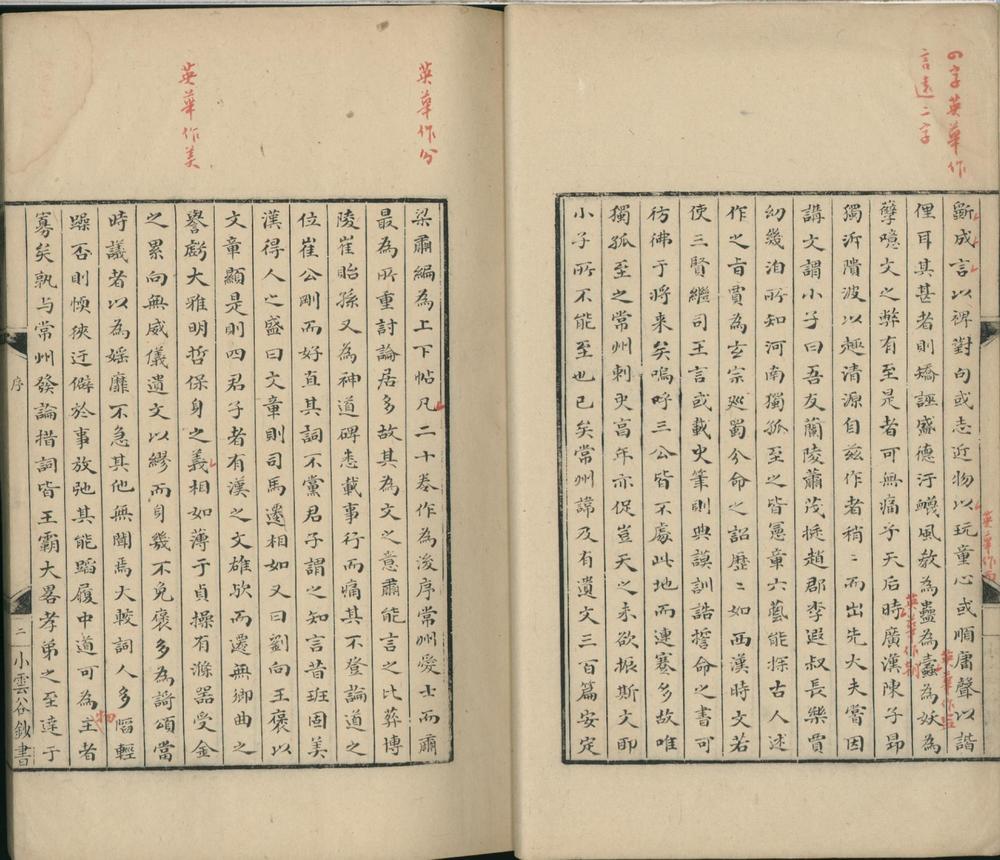 四字英華作
言遠二字
斲成言以裨對句或志近物以玩童心或順庸聲以諧
俚耳其甚者則矯誣盛德汙衊風教為蠱為蠹為妖為
英華作蠥
孽噫文之弊有至是者可無痛乎天后時廣漢陳子昂
英華作而
英華作制
獨泝隤波以趣清源自茲作者稍〻而出先大夫嘗因
講文謂小子曰吾友蘭陵蕭茂挺趙郡李遐叔長樂賈
幼幾洎所知河南獨孤至之皆憲章六藝能探古人述
作之旨賈為玄宗巡蜀分命之詔歷〻如西漢時文若
使三賢繼司王言或載史筆則典謨訓誥誓命之書可
彷彿于將来矣嗚呼三公皆不處此地而連蹇多故唯
獨孤至之常州刺史富年亦促豈天之未欲振斯文耶
小子所不能至也已矣常州諱及有遺文三百篇安定
英華作分
梁肅編為上下帖凡二十卷作為後序常州愛士而肅
最為所重討論居多故其為文之意肅能言之比葬博
陵崔貽孫又為神道碑悉載事行而痛其不登論道之
位崔公剛而好直其詞不黨君子謂之知言昔班固美
漢得人之盛曰文章則司馬遷相如又曰劉向王褒以
文章顯是則四君子者有漢之文雄歟而遷無鄉曲之
英華作美
譽虧大雅明哲保身之義相如薄于貞操有滌器受金
之累向無威儀遺文以繆而身幾不免褒多為謌頌當
時議者以為婬靡不急其他無聞焉大較詞人多愮輕
躁否則愞狹迂僻於事放弛其能蹈履中道可為主者
物
寡矣孰与常州發論措詞皆王霸大畧孝弟之至達于
序
二
小雲谷鈔書